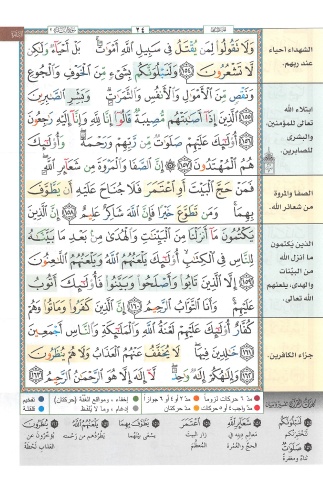 ٢٤
وَلَا تَقُولُوا۟ لِمَن يُقْتَلُ فِى سَبِيلِ ٱللَّهِ أَمْوَٰتٌۢ ۚ بَلْ أَحْيَآءٌ وَلَٰكِن
لَّا تَشْعُرُونَ ١٥٤ وَلَنَبْلُوَنَّكُم بِشَىْءٍ مِّنَ ٱلْخَوْفِ وَٱلْجُوعِ
وَنَقْصٍ مِّنَ ٱلْأَمْوَٰلِ وَٱلْأَنفُسِ وَٱلثَّمَرَٰتِ ۗ وَبَشِّرِ ٱلصَّٰبِرِينَ
١٥٥ ٱلَّذِينَ إِذَآ أَصَٰبَتْهُم مُّصِيبَةٌ قَالُوٓا۟ إِنَّا لِلَّهِ وَإِنَّآ إِلَيْهِ رَٰجِعُونَ
١٥٦ أُو۟لَٰٓئِكَ عَلَيْهِمْ صَلَوَٰتٌ مِّن رَّبِّهِمْ وَرَحْمَةٌ ۖ وَأُو۟لَٰٓئِكَ
هُمُ ٱلْمُهْتَدُونَ ١٥٧ إِنَّ ٱلصَّفَا وَٱلْمَرْوَةَ مِن شَعَآئِرِ ٱللَّهِ ۖ
فَمَنْ حَجَّ ٱلْبَيْتَ أَوِ ٱعْتَمَرَ فَلَا جُنَاحَ عَلَيْهِ أَن يَطَّوَّفَ
بِهِمَا ۚ وَمَن تَطَوَّعَ خَيْرًا فَإِنَّ ٱللَّهَ شَاكِرٌ عَلِيمٌ ١٥٨ إِنَّ ٱلَّذِينَ
يَكْتُمُونَ مَآ أَنزَلْنَا مِنَ ٱلْبَيِّنَٰتِ وَٱلْهُدَىٰ مِنۢ بَعْدِ مَا بَيَّنَّٰهُ
لِلنَّاسِ فِى ٱلْكِتَٰبِ ۙ أُو۟لَٰٓئِكَ يَلْعَنُهُمُ ٱللَّهُ وَيَلْعَنُهُمُ ٱللَّٰعِنُونَ
١٥٩ إِلَّا ٱلَّذِينَ تَابُوا۟ وَأَصْلَحُوا۟ وَبَيَّنُوا۟ فَأُو۟لَٰٓئِكَ أَتُوبُ
عَلَيْهِمْ ۚ وَأَنَا ٱلتَّوَّابُ ٱلرَّحِيمُ ١٦٠ إِنَّ ٱلَّذِينَ كَفَرُوا۟ وَمَاتُوا۟ وَهُمْ
كُفَّارٌ أُو۟لَٰٓئِكَ عَلَيْهِمْ لَعْنَةُ ٱللَّهِ وَٱلْمَلَٰٓئِكَةِ وَٱلنَّاسِ أَجْمَعِينَ
١٦١ خَٰلِدِينَ فِيهَا ۖ لَا يُخَفَّفُ عَنْهُمُ ٱلْعَذَابُ وَلَا هُمْ يُنظَرُونَ
١٦٢ وَإِلَٰهُكُمْ إِلَٰهٌ وَٰحِدٌ ۖ لَّآ إِلَٰهَ إِلَّا هُوَ ٱلرَّحْمَٰنُ ٱلرَّحِيمُ ١٦٣
الشهداء أحياء
عند ربهم.
ابتلاء الله
تعالى للمؤمنين،
والبشرى
للصابرين.
الصفا والمروة
من شعائر الله.
الذين يكتمون
ما أنزل الله
من البينات
والهدى، يلعنهم
الله تعالى.
جزاء الكافرين.
مد ٦ حركات لزوماً
مد ٢ أو ٤ أو ٦ جوازاً
إخفاء، ومواقع الغنة (حركتان)
تفخيم
مد واجب ٤ أو ٥ حركات
مد حركتان
إدغام، وما لا يلفظ
قلقلة
لَنَبْلُوَنَّكُمْ
لنختبرنكم
صَلَوَاتٌ
ثناء ومغفرة
شَعَائِرِ اللَّهِ
معالم دينه في
الحج والعمرة
اعْتَمَرَ
زار البيت
المعظم
يَطَّوَّفَ بِهِمَا
يسعى بينهما
يَلْعَنُهُمُ اللَّهُ
يطردهم من رحمته
يُنْظَرُونَ
يؤخرون عن
العذاب لحظة